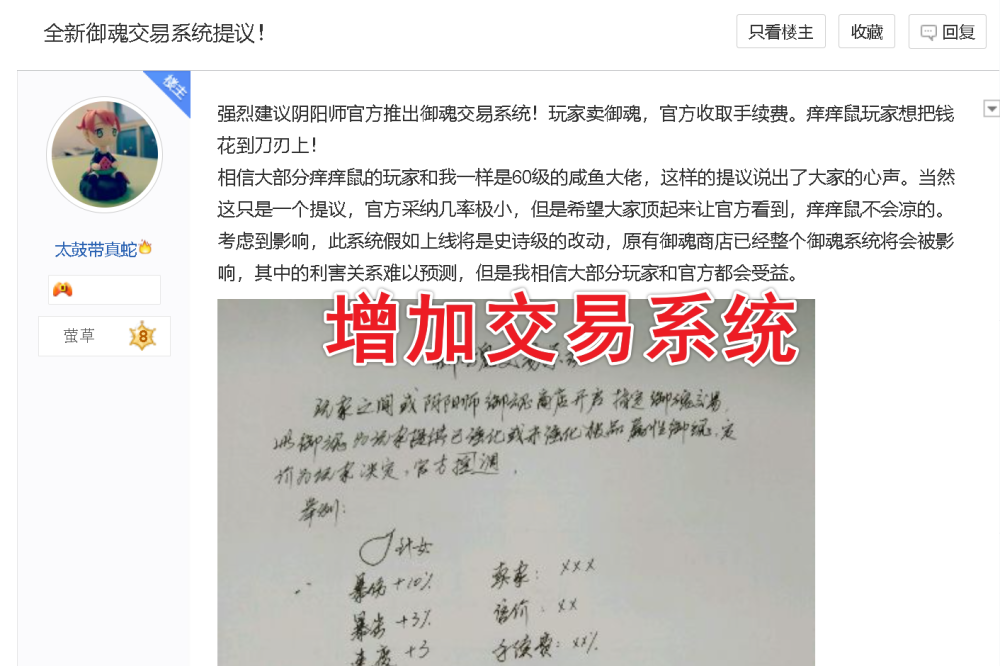 全新御魂交易系统提议！
只看楼主
收藏
回复
楼主
强烈建议阴阳师官方推出御魂交易系统！玩家卖御魂，官方收取手续费。痒痒鼠玩家想把钱
花到刀刃上！
相信大部分痒痒鼠的玩家和我一样是60级的咸鱼大佬，这样的提议说出了大家的心声。当然
这只是一个提议，官方采纳几率极小，但是希望大家顶起来让官方看到，痒痒鼠不会凉的。
考虑到影响，此系统假如上线将是史诗级的改动，原有御魂商店已经整个御魂系统将会被影
响，其中的利害关系难以预测，但是我相信大部分玩家和官方都会受益。
太鼓带真蛇
萤草
8
增加交易系统
玩家之间或阴阳师御魂商店开启指定御魂交易，
以御魂为玩家提供已强化或未强化极品属性御魂，定
价为玩家决定，官方控调。
举例：
针女
暴伤+10%
卖家：xxx
暴击+3%
售价：xx
速度+3
手续费：xx%